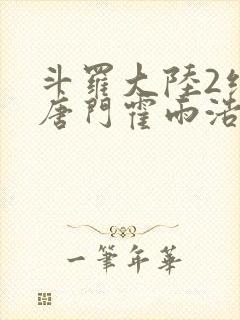 斗羅大陸2
唐門霍雨浩
一筆年華